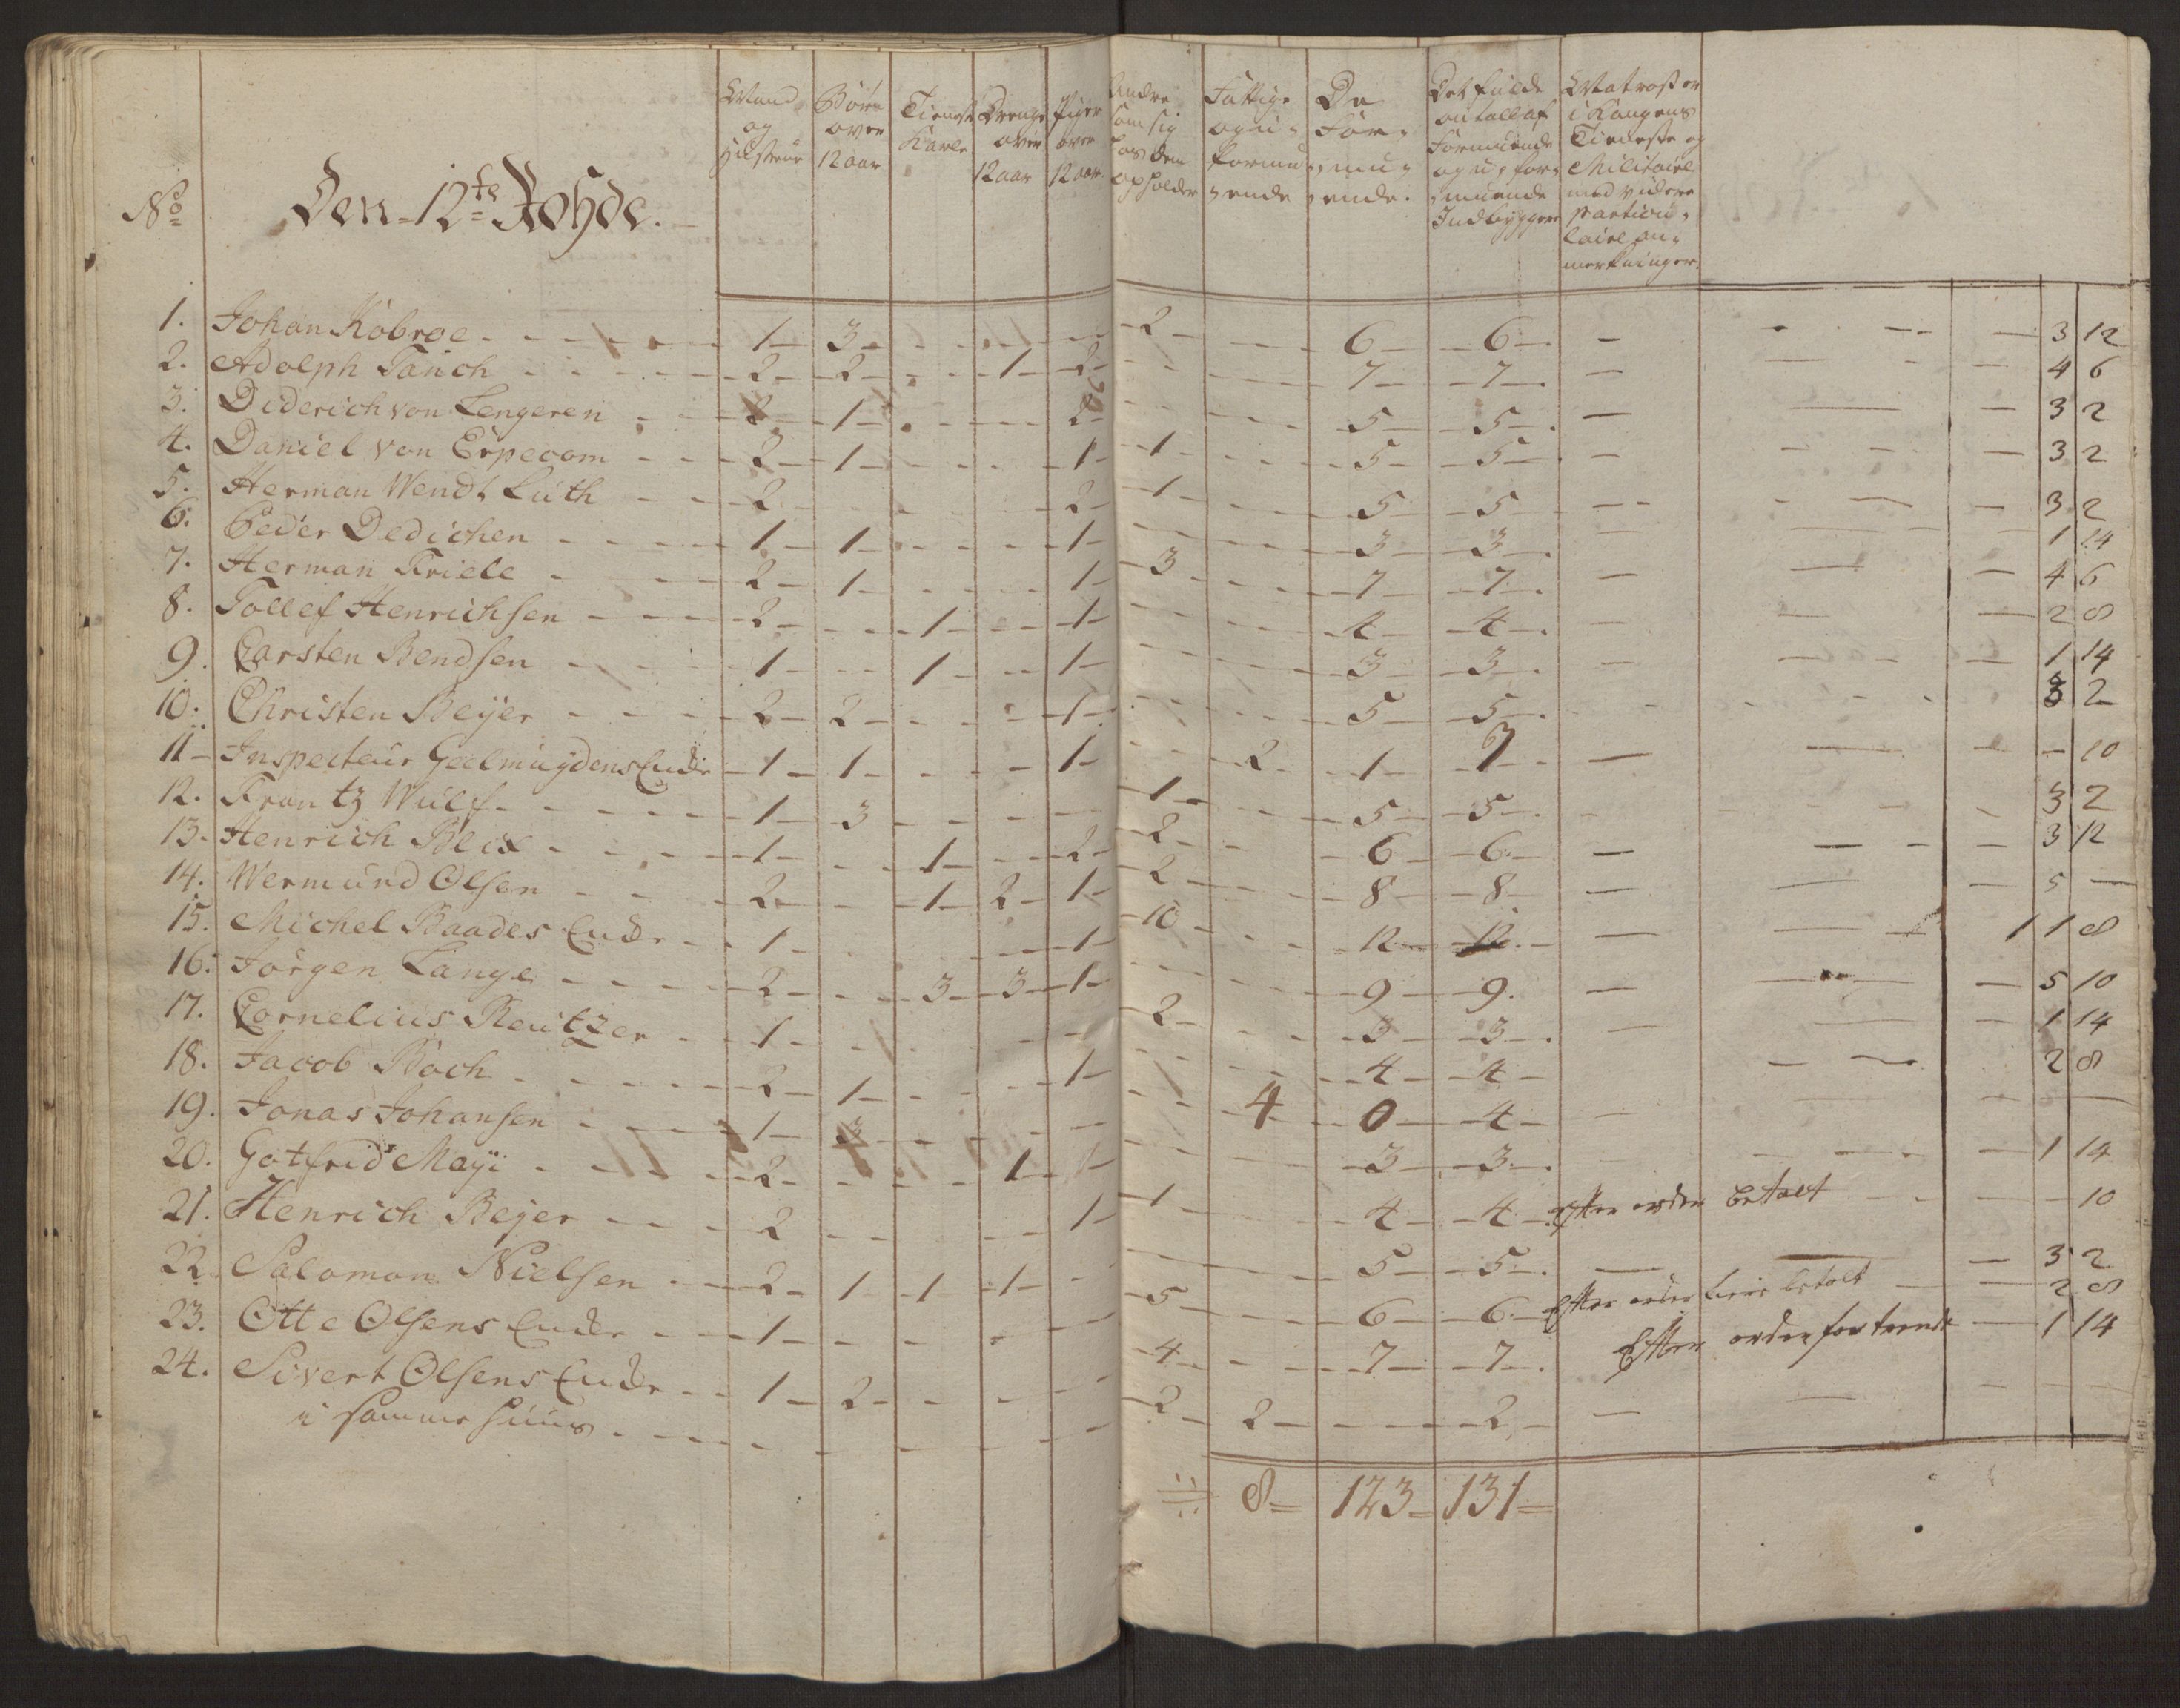 No Den 12te Rohde. Mand og Hustrue Børn over 12 aar Tieneste Karle Drenge over 12 aar Piger over 12 aar Andre som sig hos dem opholder Fattige og u-formu-ende De For-mu-ende. Det fulde antall af Formuende og u-for-muende Indbyggere Matroser i Kongens Tieneste og Militaire med videre particu-laire an-merkninger.
1. Johan Kobroe 1 3 2 6 6 3 12
2. Adolph Tanch 2 2 1 2 7 7 4 6
3. Diderich von Lengeren 2 1 2 5 5 3 2
4. Daniel von Erpecom 2 1 1 1 5 5 3 2
5. Herman Wendt Luth 2 2 1 5 5 3 2
6. Peder Dedichen 1 1 1 3 3 1 14
7. Herman Friele 2 1 1 3 7 7 4 6
8. Tollef Henrichsen 2 1 1 4 4 2 8
9. Carsten Bendsen 1 1 1 3 3 1 14
10. Christen Beyer 2 2 1 5 5 3 2
11 Inspecteur Geelmuydens Enche 1 1 1 2 1 3 10
12. Frantz Wulf 1 3 1 5 5 3 2
13. Henrich Blix 1 1 2 2 6 6 3 12
14. Wermund Olsen 2 1 2 1 2 8 8 5
15. Michel Baades Enche 1 1 10 12 12 1 1 8
16. Jörgen Lange 2 3 3 1 9 9. 5 10
17. Cornelius Reutzer 1 2 3 3 1 14
18. Jacob Boch 2 1 1 4 4 2 8
19. Jonas Johansen 1 3 4 0 4
20. Gotfrid Mayi 2 1 3 3 1 14
21. Henrich Beyer 2 1 1 4 4 Efter orden betalt 10
22. Salomon Nielsen 2 1 1 1 5 5 3 2
23. Otte Olsens Enche 1 5 6 6 Efter orden betalt 2 8
24. Sivert Olsens Enche 1 2 4 7 7 Efter orden 1 14
i samme huus 2 2 2
8 123 131